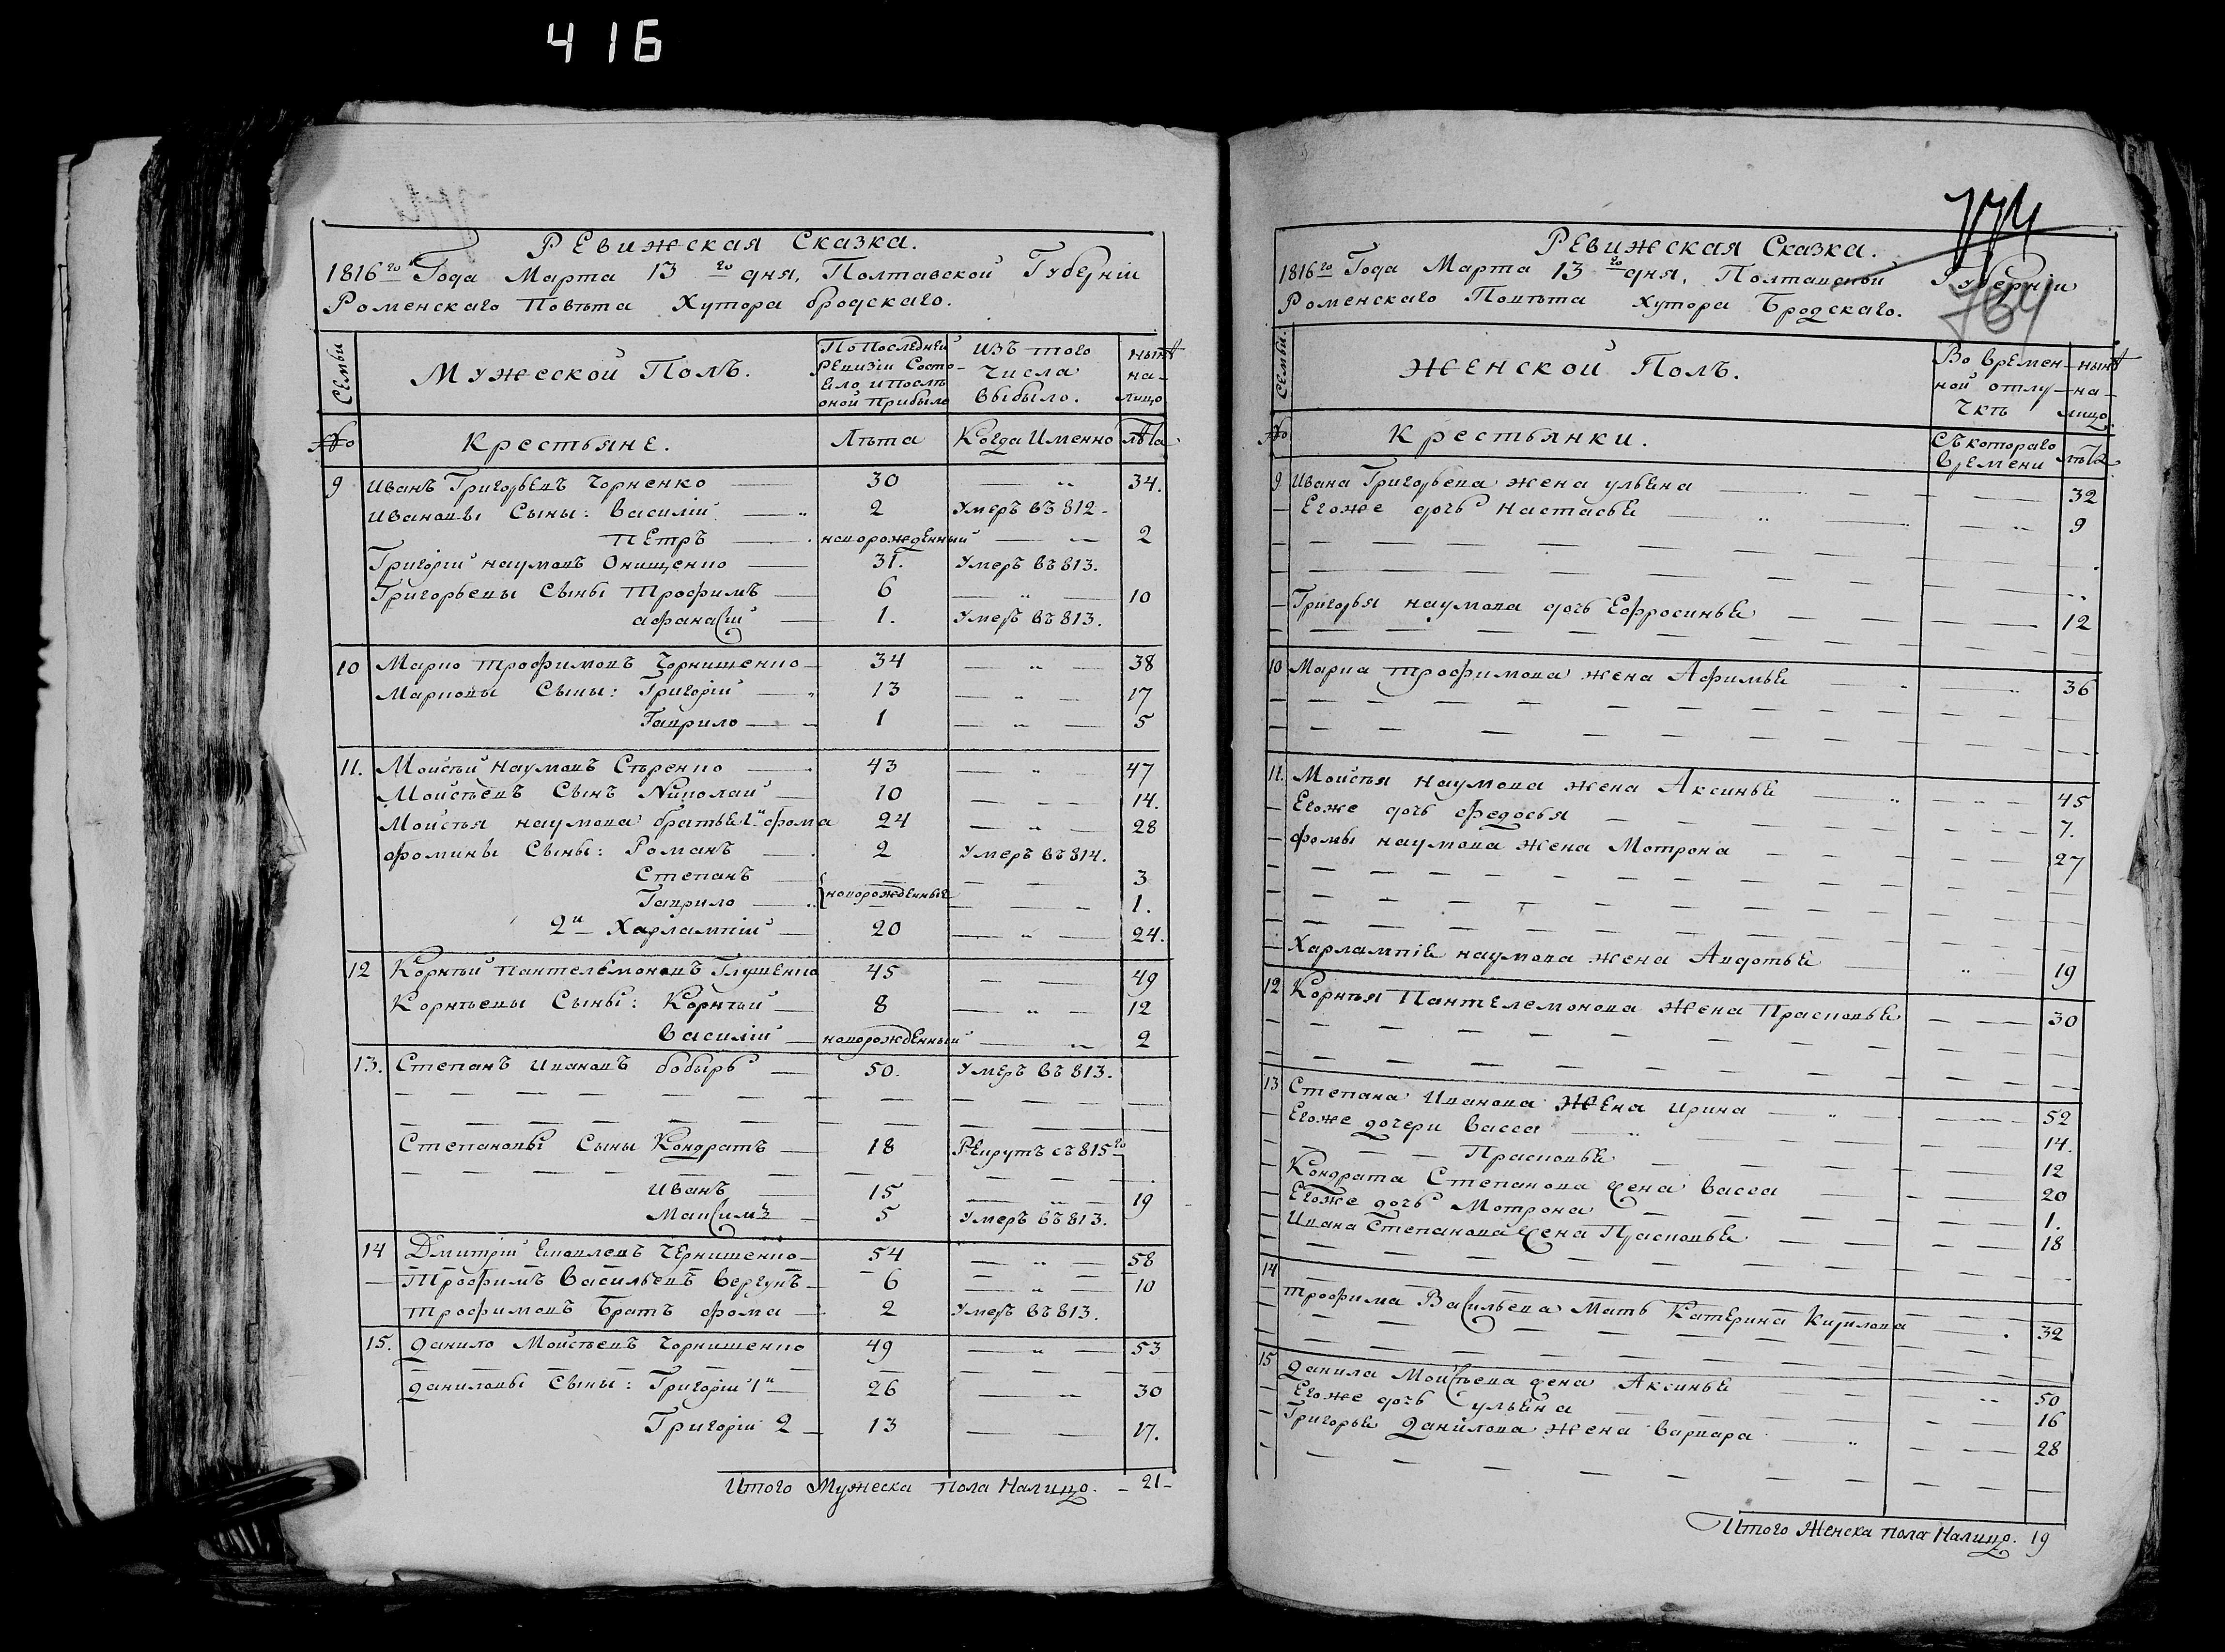 416
Ревижская Сказка.
1816го Года Марта 13го дня, Полтавской Губернїи
Роменскаго Повѣта Хутора бродскаго.
Семьи
Мужеской Полъ.
По последней Ревизїи Состояло и послѣ оной прибыло
изъ того числа выбыло.
нынѣ на-лицо
№ Крестьяне. Лѣта Когда Именно лѣта
9 Иванъ Григорьевъ Чорненко 30 34.
Ивановы Сыны: Василїй 2 Умеръ въ 812
Петръ новорожденный 2
Григорїй наумовъ Онищенко 31. Умеръ въ 813.
Григорьевы Сыны Трофимъ 6 10
афанасїй 1. Умеръ въ 813.
10 Марко трофимовъ Чорнишенко 34 38
Марковы Сыны: Григорїй 13 17
Гаврило 1 5
11. Моисѣй Наумовъ Сѣренко 43 47
Моисѣевъ Сынъ Николай 10 14.
Моисѣя наумова братья 1й фома 24 28
фомины Сыны: Романъ 2 Умеръ въ 814.
Степанъ 3
новорожденные
Гаврило 1.
2й Харлампїй 20 24.
12 Корнѣй пантелемоновъ Глушенко 45 49
Корнѣевы Сыны: Корнѣй 8 12
Василїй новорожденный 2
13. Степанъ Ивановъ бобырь 50. Умеръ въ 813.
Степановы Сыны Кондратъ 18 Рекрутъ съ 815го
Иванъ 15 19
Максимъ 5 Умеръ въ 813.
14 Дмитрїй Чернишенко 54 58
Трофимъ Васильевъ Вергунъ 6 10
трофимовъ Братъ фома 2 Умеръ въ 813.
15. Данило Моисѣевъ Чорнишенко 49 53
даниловы Сыны: Григорїй 1й 26 30
Григорїй 2 13 17.
Итого Мужеска пола Налицо. 21
774
Ревижская Сказка.
1816го Года Марта 13го дня, Полтавской Губернїи
764
Роменскаго Повѣта хутора Бродскаго.
Семьи.
Женской Полъ.
Во времен-ной отлу-чкѣ
нынѣ на-лицо.
№ Крестьянки. Съ котораго времени лѣта
9 Ивана Григорьева жена ульяна 32
Егоже дочь Настасья 9
Григорья наумова дочь Ефросинья 12
10 Марка трофимова жена Афимья 36
11. Моисѣя наумова жена Аксинья 45
Егоже дочь Федосья 7.
фомы наумова жена Мотрона 27
Харлампїя наумова жена Авдотья 19
12 Корнѣя Пантелемонова жена Прасковья 30
13 Степана Иванова Жена Ирина 52
Егоже дочери Васса 14.
Прасковья 12
Кондрата Степанова жена Васса 20
Егоже дочь Мотрона 1.
Ивана Степанова жена Прасковья 18
14
трофима Васильева Мать Катерина Кирилова 32
15 Данила Моисѣева жена Аксинья 50
Егоже дочь ульяна 16
Григорья Данилова жена варвара 28
Итого Женска пола Налицо. 19